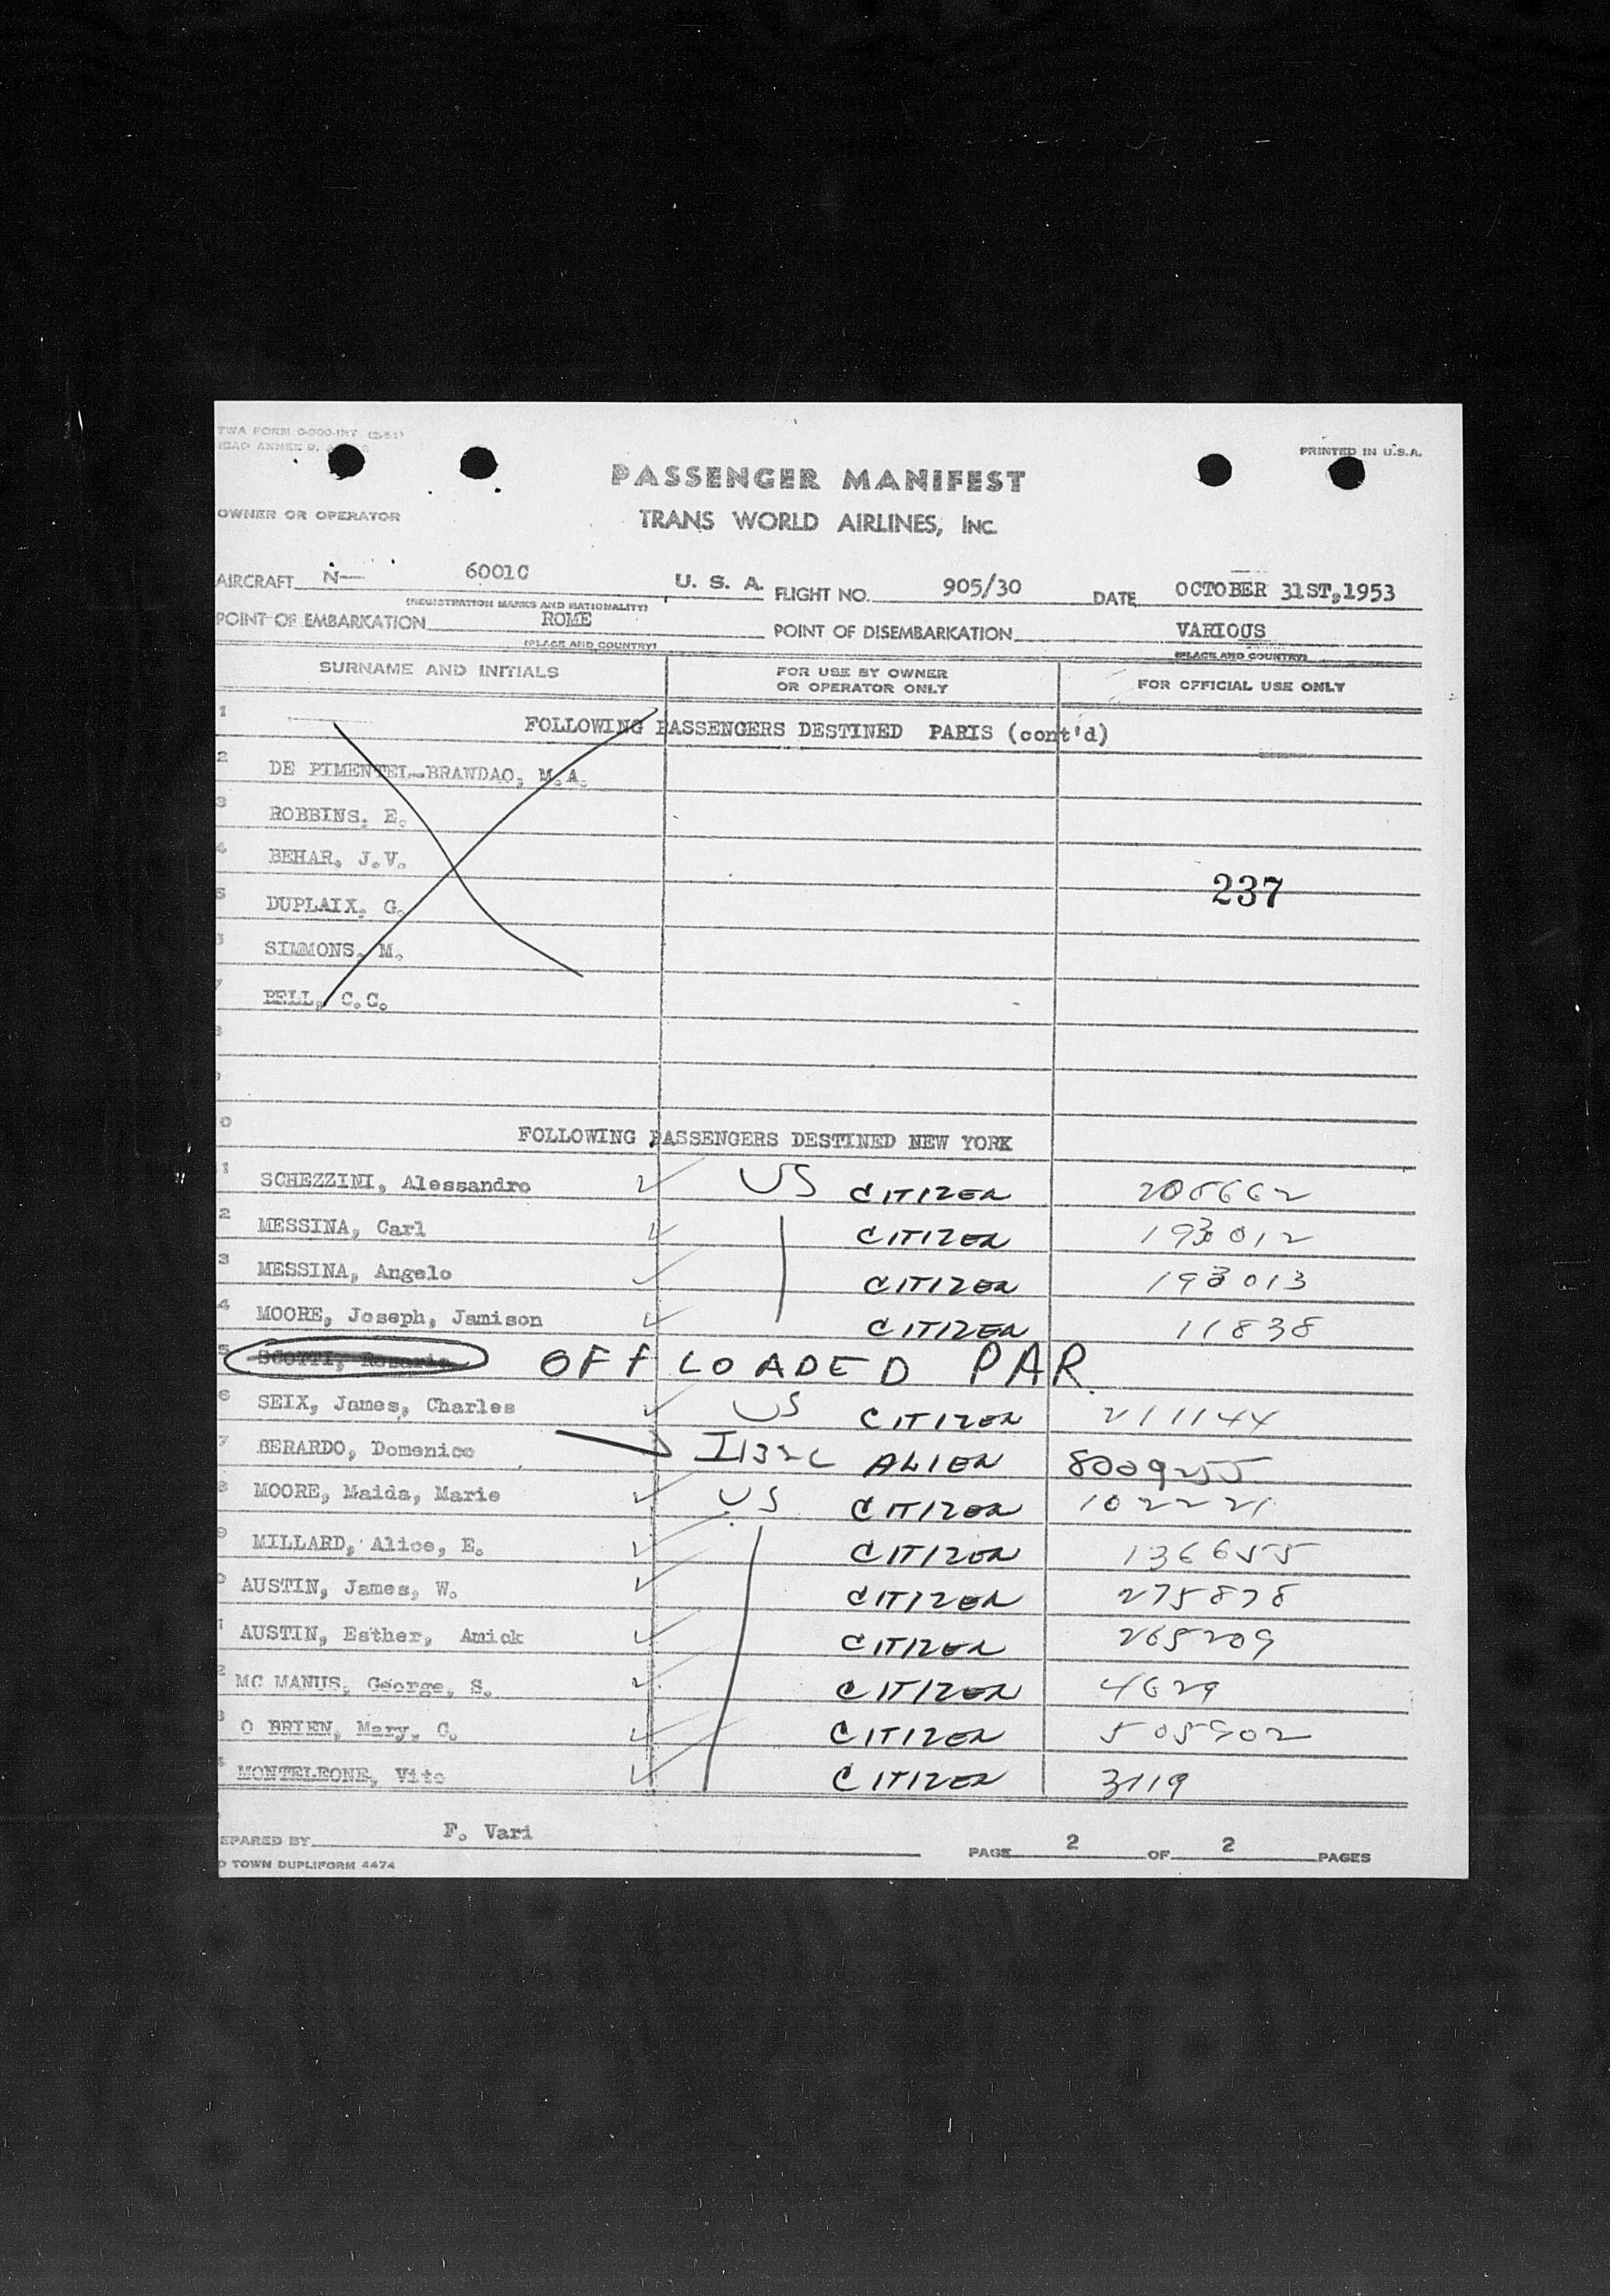 TWA FORM 0-300-INT (2-51)
ICAO ANNEX 9,
PRINTED IN U.S.A.
PASSENGER MANIFEST
OWNER OR OPERATOR
TRANS WORLD AIRLINES, INC.
AIRCRAFT N- 6001C U. S. A. FLIGHT NO. 905/30 DATE OCTOBER 31ST,1953
(REGISTRATION MARKS AND NATIONALITY)
POINT OF EMBARKATION ROME POINT OF DISEMBARKATION VARIOUS
(PLACE AND COUNTRY) (PLACE AND COUNTRY)
SURNAME AND INITIALS FOR USE BY OWNER OR OPERATOR ONLY FOR OFFICIAL USE ONLY
1 FOLLOWING PASSENGERS DESTINED PARIS (cont'd)
2 DE PIMENTEL-BRANDAO, M.A.
3 ROBBINS, E.
4 BEHAR, J.V.
237
5 DUPLAIX, G.
SIMMONS, M.
7 PELL, C.C.
0 FOLLOWING PASSENGERS DESTINED NEW YORK
1 SCHEZZINI, Alessandro US CITIZEN 206662
2 MESSINA, Carl CITIZEN 193012
3 MESSINA, Angelo CITIZEN 193013
4 MOORE, Joseph, Jamison CITIZEN 11838
5 SCOTTI, OFF LOADED PAR
6 SEIX, James, Charles US CITIZEN 211144
7 BERARDO, Domenico I132C ALIEN 8009255
8 MOORE, Maida, Marie US CITIZEN 102221
9 MILLARD, Alice, E. CITIZEN 136655
0 AUSTIN, James, W. CITIZEN 275878
1 AUSTIN, Esther, Amick CITIZEN 265209
2 MC MANUS, George, S. CITIZEN 4629
3 O BRIEN, Mary, C. CITIZEN 505902
MONTELEONE, Vito CITIZEN 3119
EPARED BY F. Vari PAGE 2 OF 2 PAGES
TOWN DUPLIFORM 4474